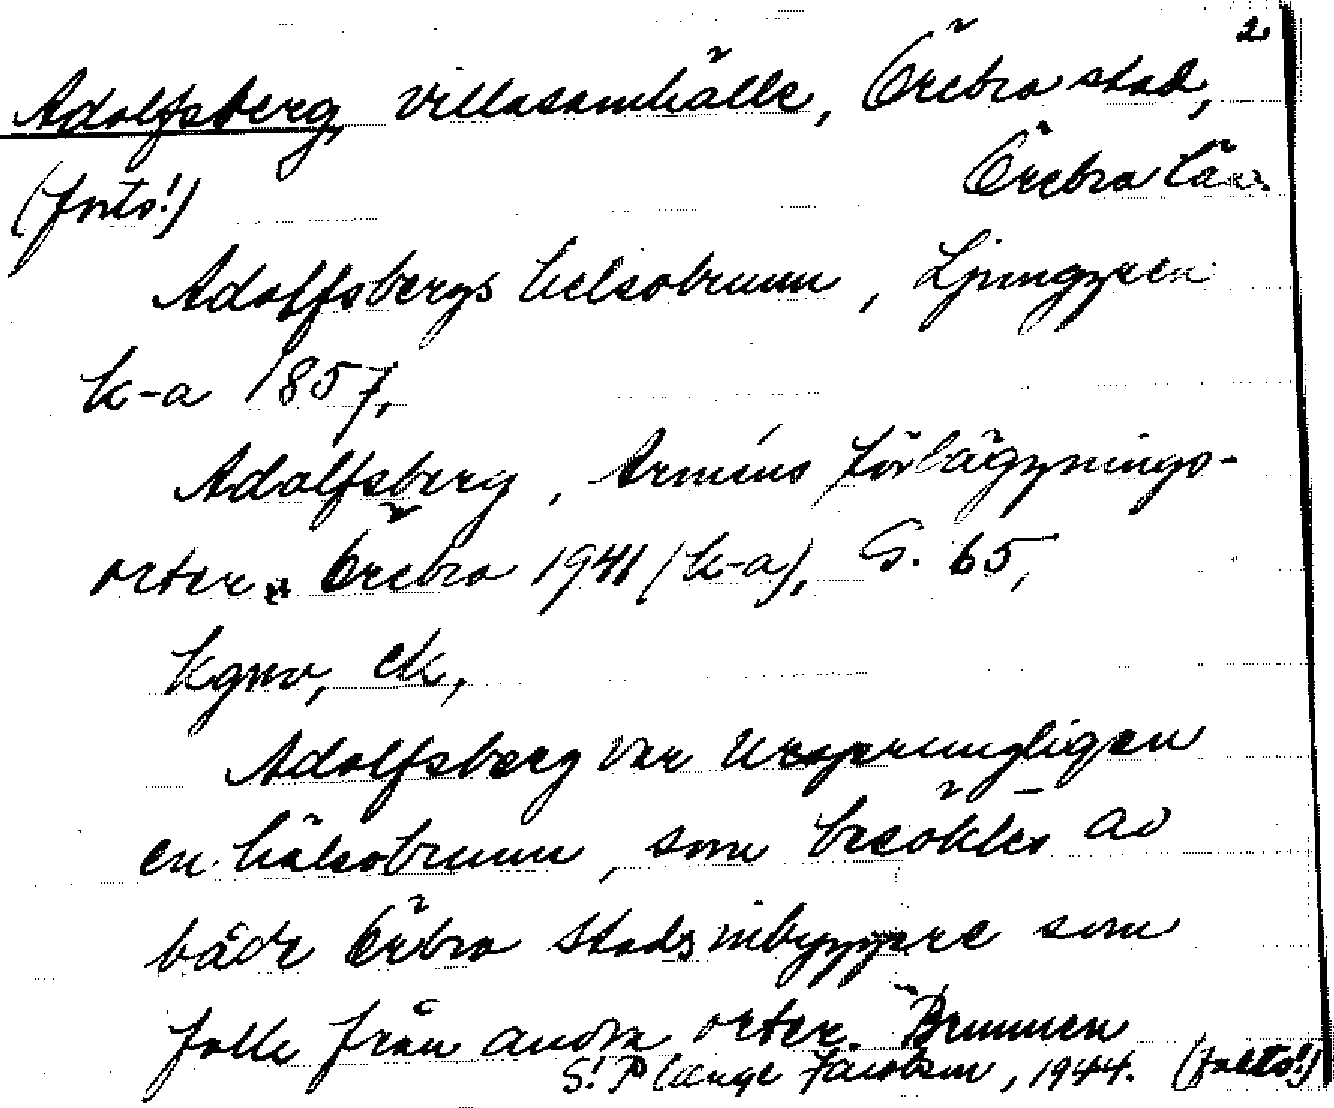 2
Adolfsberg, villasamhälle, Örebro stad,
(forts!) Örebro län.
Adolfsbergs helsobrunn, Ljunggren
k-a 1857,
Adolfsberg, Arméns förläggnings-
orter Örebro 1941 (k-a), S. 65,
kgnv, ek,
Adolfsberg var ursprungligen
en hälsobrunn, som besöktes av
både Örbro stads inbyggare som
folk från andra orter. Brunnen
S! P Lange Jacobson, 1944. (forts!)